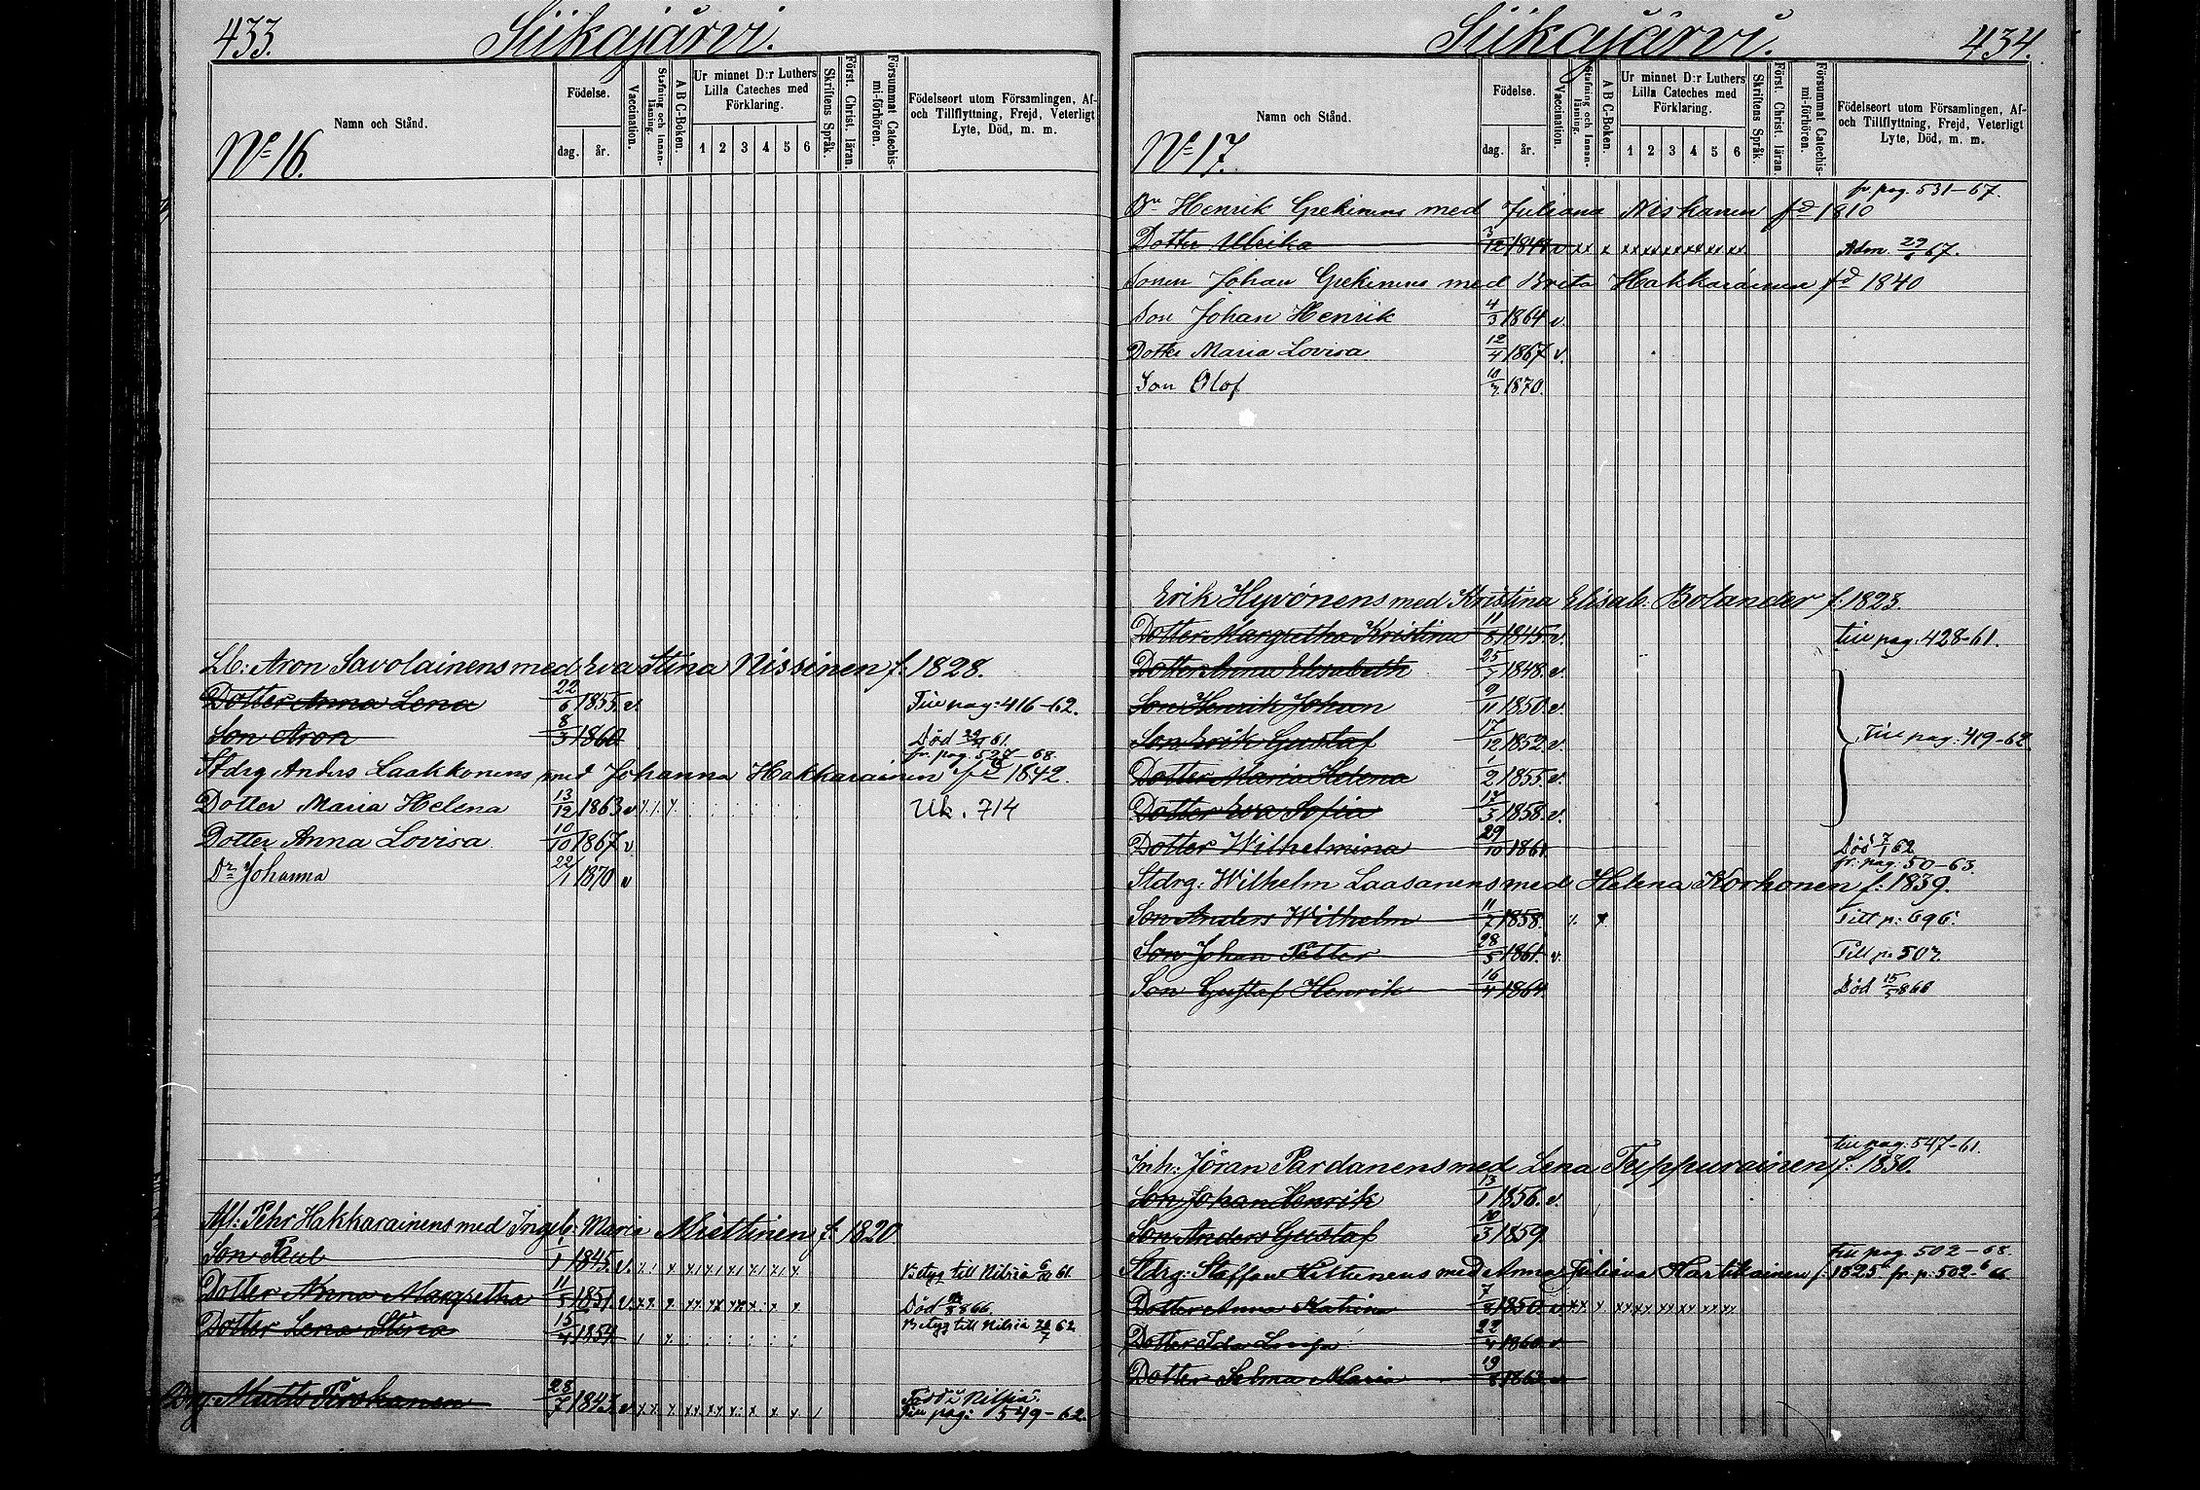 433. Siikajärvi.
Namn och Stånd.
Födelse.
dag. år.
Vaccination.
Stafning och Innanläsning.
A B C-Boken.
Ur minnet D:r Luthers Lilla Cateches med Förklaring.
1 2 3 4 5 6
Skriftens Språk.
Först. Christ. läran.
Försummat Catechismi-förhören.
Födelseort utom Församlingen, Af- och Tillflyttning, Frejd, Veterligt Lyte, Död, m. m.
No 16.
Lb: Aron Savolainens med Eva Stina Nissinen f. 1828.
Dotter Anna Lena 22/6 1855. v. Tiu pag: 416-62.
Son Aron 8/3 1860 Död 61.
fr. pag. 527-68.
Stdrg Anders Laakkonens med Johanna Hakkarainen fd 1842.
Dotter Maria Helena 13/12 1863 v Uk. 714
Dotter Anna Lovisa 10/10 1867 v
Dr Johanna 22/1 1870 v
Afl: Pehr Hakkarainens med Ingeb: Maria Miettinen f. 1820
Son Paul 1/1 1845. v. Betyg till Nilsiä 61.
Dotter Anna Margretha 11/5 1851. v. Död 866.
Dotter Lena Stina 15/4 1859 Betyg till Nilsiä 62
Drg. Matts Pirskanen 23/7 1843. v Född i Nilsiä.
Tiu pag: 549-62.
Siikajärvi. 434.
Namn och Stånd.
Födelse.
dag. år.
Vaccination.
Stafning och Innanläsning.
A B C-Boken.
Ur minnet D:r Luthers Lilla Cateches med Förklaring.
1 2 3 4 5 6
Skriftens Språk.
Först. Christ. läran.
Försummat Catechismi-förhören.
Födelseort utom Församlingen, Af- och Tillflyttning, Frejd, Veterligt Lyte, Död, m. m.
No 17.
fr. pag. 531-67.
Henrik med Juliana Niskanen fd 1810
Dotter Ulrika 67.
Sonen Johan med Brita Hakkarainen fd 1840
Son Johan Henrik 4/3 1864 v.
Dotter Maria Lovisa 12/4 1867 v.
Son Olof 1870.
Erik Hyvönens med Kristina Elisab: Bolander f. 1823.
Dotter Margretha Kristina 11/8 1845. v. tiu pag: 428-61.
Dotter Anna Elisabeth 25/7 1848. v.
Son Henrik Johan 9/11 1850. v.
Son Erik Gustaf 17/12 1852. v. Tiu pag: 419-62
Dotter Maria Helena 1/2 1855. v.
Dotter Eva Sofia 1858. v.
Dotter Wilhelmina 29/10 1861 Död 7/1 62
fr: pag: 50-63.
Stdrg: Wilhelm Laasanens med Helena Korhonen f: 1839.
Son Anders Wilhelm 11/7 1858. Till p: 696.
Son Johan Petter 28/5 1861. v. Till p. 507
Son Gustaf Henrik 16/4 1864. Död 15/5 866
tiu pag: 547-61.
Inh: Jöran Pardanens med Lena Tuppurainen f: 1830.
Son Johan Henrik 13/1 1856. v.
Son Anders Gustaf 10/3 1859.
tiu pag. 502-68.
Stdrg: Staffan Hiltunens med Anna Juliana Hartikainen f. 1825 fr. p: 502-66
Dotter Anna Katrina 7/8 1850 v.
Dotter Ida Lovisa 22/4 1860 v.
Dotter Selma Maria 19/8 1863 v